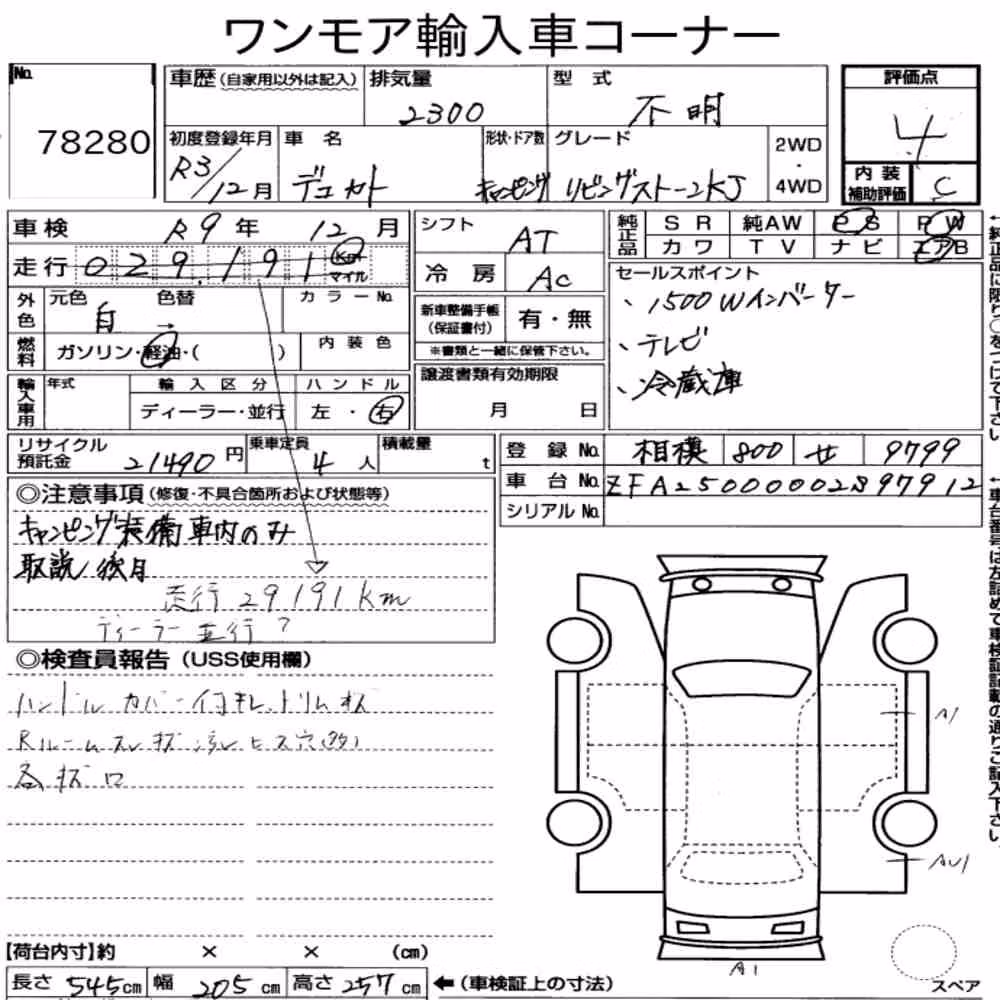 ワンモア輸入車コーナー
No. 78280
車歴(自家用以外は記入) 排気量 2300 型式 不明
初度登録年月 R3/12月 車名 デュカト 形状・ドア数 キャンピング グレード リビングストーンKJ 2WD・4WD
評価点 4
内装補助評価 C
車検 R9年 12月
走行 029,191 Km マイル
外色 元色 白 色替 → カラーNo.
燃料 ガソリン・軽油・( ) 内装色
輸入車用 年式 輸入区分 ディーラー・並行 ハンドル 左・右
シフト AT
冷房 AC
新車整備手帳(保証書付) 有・無
※書類と一緒に保管下さい。
譲渡書類有効期限 月 日
純正品 SR 純AW PS PW
カワ TV ナビ エアB
セールスポイント
、1500Wインバーター
、テレビ
、冷蔵庫
←純正品に限り○をつけて下さい。
リサイクル預託金 21490円 乗車定員 4人 積載量 t
登録No. 相模 800 せ 9799
車台No. ZFA25000002S97912
シリアルNo.
←車台番号は左詰めで車検証記載の通りご記入下さい。
◎注意事項(修復・不具合箇所および状態等)
キャンピング装備車内のみ
取説 後日
走行 29191km
ディーラー 並行?
◎検査員報告(USS使用欄)
ハンドルカバー付 キレ、トリム
Rルーム
A1
AU1
A1
スペア
【荷台内寸】約 × × (cm)
長さ 545cm 幅 205cm 高さ 257cm ←(車検証上の寸法)